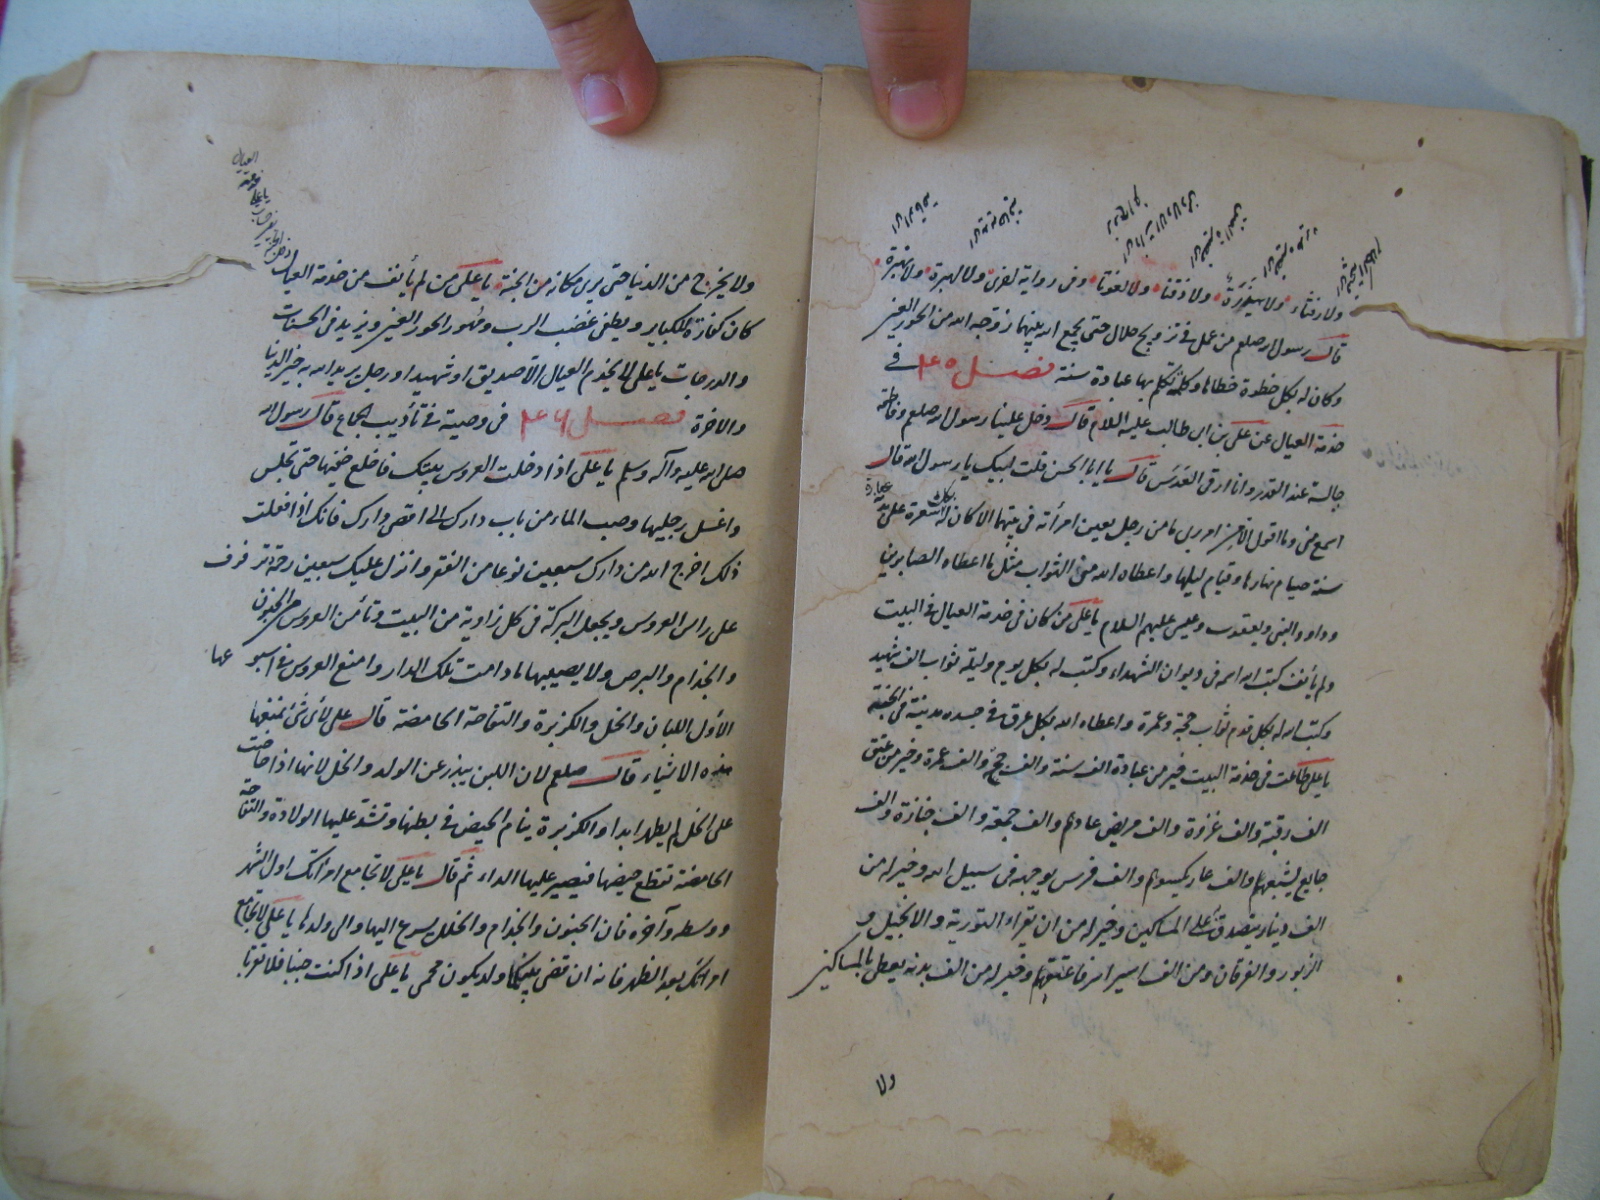 ولا رفثاء ولا هيذرة ولا ذقنا ولا لفوتا وفى رواية اخرى ولا لهبرة ولا نهبرة
قال رسول الله صلعم من عمل فى تزويج حلال حتى يجمع الله بينهما زوجه الله من الحور العين
وكان له بكل خطوة خطاها وكلمة تكلم بها عبادة سنة فصل ٤٥ فى
خدمة العيال عن على بن ابى طالب عليه السلام قال دخل علينا رسول الله صلعم وفاطمة
جالسة عند القدر وانا انقى العدس قال يا ابا الحسن قلت لبيك يا رسول الله قال
اسمع منى وما اقول الا من امر ربى ما من رجل يعين امرأته فى بيتها الا كان له بكل شعرة على بدنه عبادة
سنة صيام نهارها وقيام ليلها واعطاه الله من الثواب مثل ما اعطاه الصابرين
وداود النبى ويعقوب وعيسى عليهم السلام يا على من كان فى خدمة العيال فى البيت
ولم يأنف كتب الله اسمه فى ديوان الشهداء وكتب له بكل يوم وليلة ثواب الف شهيد
وكتب الله له بكل قدم ثواب حجة وعمرة واعطاه الله بكل عرق فى جسده مدينة فى الجنة
يا على ساعة فى خدمة البيت خير من عبادة الف سنة والف حج والف عمرة وخير من عتق
الف رقبة والف غزوة والف مريض عادهم والف جمعة والف جنازة والف
جايع يشبعهم والف عار يكسوهم والف فرس يوجهه فى سبيل الله وخير له من
الف دينار يتصدق على المساكين وخير له من ان يقراء التورية والانجيل و
الزبور والفرقان ومن الف اسير اسر فاعتقهم وخير له من الف بدنه يعطى بالمساكين
ولا
ولا يخرج من الدنيا حتى يرى مكانه من الجنة يا على من لم يأنف من خدمة العيال
كان كفارة للكباير ويطفى غضب الرب ومهور الحور العين ويزيد فى الحسنات
والدرجات يا على لا يخدم العيال الا صديق او شهيد او رجل يريد الله به خير الدنيا
والاخرة فصل ٤٦ فى وصية فى تأديب الجماع قال رسول الله
صلى الله عليه وآله وسلم يا على اذا دخلت العروس بيتك فاخلع خفيها حتى تجلس
واغسل رجليها وصب الماء من باب دارك الى اقصى دارك فانك اذا فعلت
ذلك اخرج الله من دارك سبعين نوعا من الفقر وانزل عليك سبعين رحمة ترفرف
على راس العروس ويجعل البركة فى كل زاوية من البيت وتأمن العروس من الجنون
والجذام والبرص ولا يصيبها ما دامت تلك الدار وامنع العروس فى اسبوعها
الأول اللبان والخل والكزبرة والتفاحة الحامضة قال على لأى شئ امنعها
هذه الاشياء قال صلعم لان اللبن يبذر عن الولد والخل لانها اذا حاضت
على الخل لم يطهر ابدا والكزبرة ينام الحيض فى بطنها وتشد عليها الولادة والتفاحة
الحامضة تقطع حيضها فيصير عليها الداء ثم قال يا على لا تجامع امراتك اول الشهر
ووسطه وآخره فان الجنون والجذام والخلل يسرع اليها والى ولدها يا على لا تجامع
امراتك بعد الظهر فانه ان قضى بينكما ولد يكون يا على اذا كنت جنبا فلا تقرء